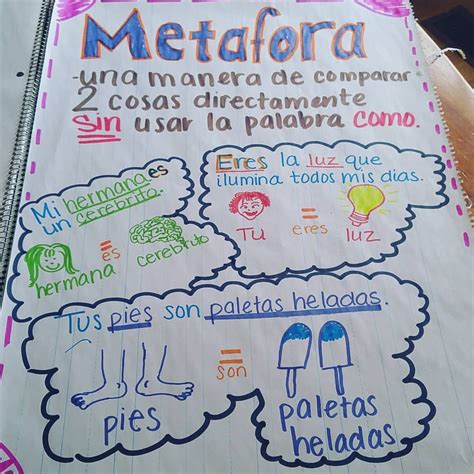 Metafora
-una manera de comparar
2 cosas directamente
sin usar la palabra como.
Mi hermana es
un cerebrito.
=
es
hermana
cerebrito
Eres la luz que
ilumina todos mis dias.
=
Tu eres luz
Tus pies son paletas heladas.
=
son
pies
paletas
heladas